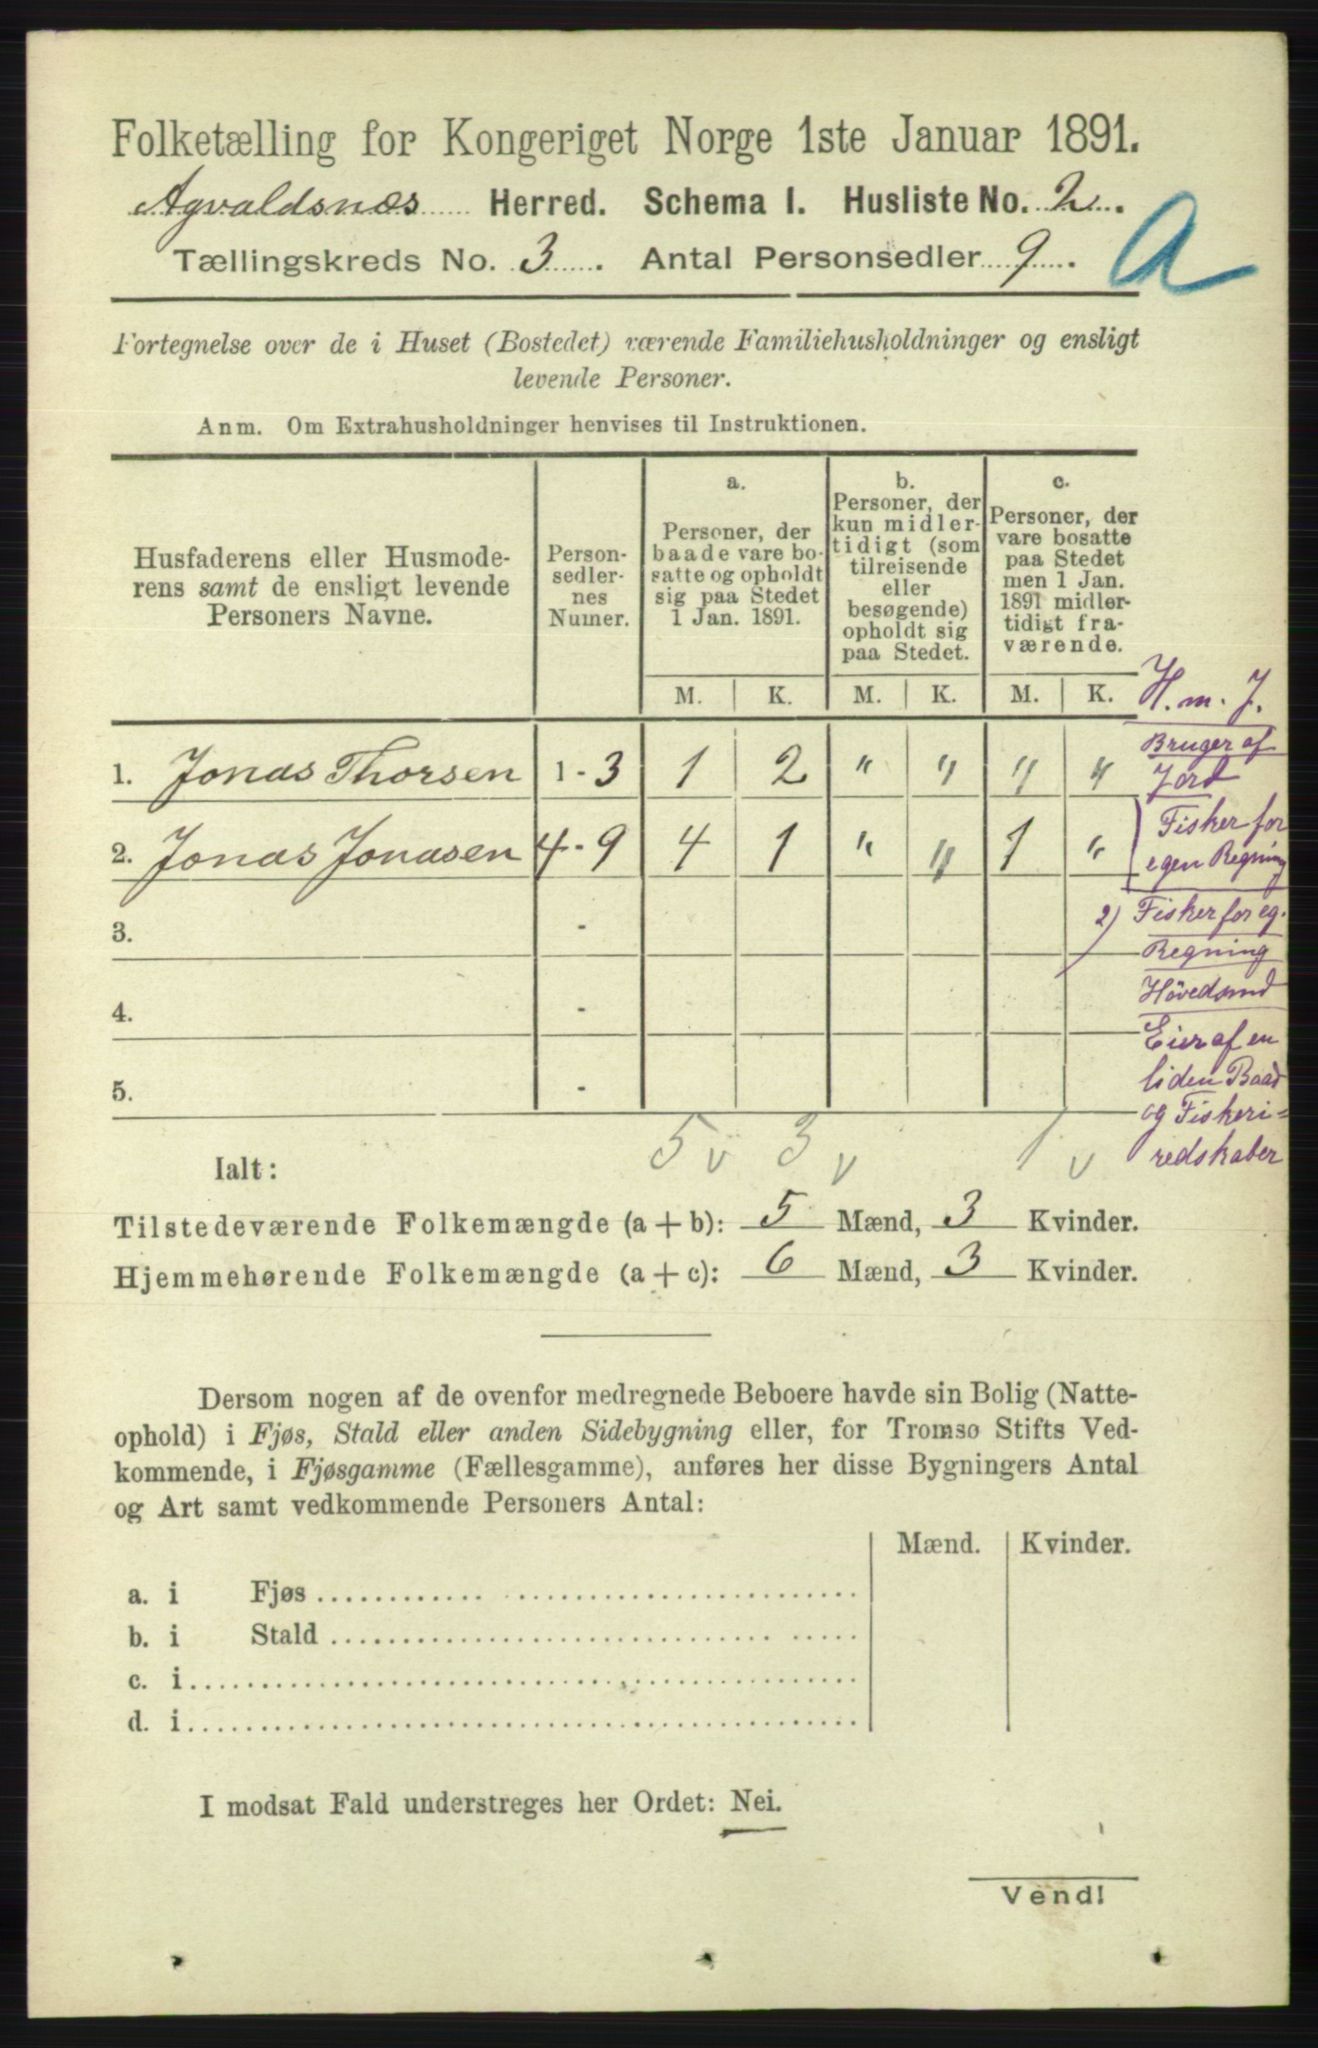 Folketælling for Kongeriget Norge 1ste Januar 1891.
Agvaldsnæs Herred. Schema I. Husliste No. 2.
Tællingskreds No. 3. Antal Personsedler 9.
A
Fortegnelse over de i Huset (Bostedet) værende Familiehusholdninger og ensligt
levende Personer.
Anm. Om Extrahusholdninger henvises til Instruktionen.
Husfaderens eller Husmode-
rens samt de ensligt levende
Personers Navne.
Person-
sedler-
nes
Numer.
a.
Personer, der
baade vare bo-
satte og opholdt
sig paa Stedet
1 Jan. 1891.
b.
Personer, der
kun midler-
tidigt (som
tilreisende
eller
besøgende)
opholdt sig
paa Stedet.
c.
Personer, der
vare bosatte
paa Stedet
men 1 Jan.
1891 midler-
tidigt fra-
værende.
M. K. M. K. M. K.
1. Jonas Thorsen 1 - 3 1 2 " " " "
2. Jonas Jonasen 4 - 9 4 1 " " 1 "
3. -
4. -
5. -
H. m. J.
Bruger af
Jord
Fisker for
egen Regning
2) Fisker for eg.
Regning
Hövedsmd
Eier af en
liden Baad
og Fiskeri=
redskaber
5 v 3 v 1 v
Ialt:
Tilstedeværende Folkemængde (a + b): 5 Mænd, 3 Kvinder.
Hjemmehørende Folkemængde (a + c): 6 Mænd, 3 Kvinder.
Dersom nogen af de ovenfor medregnede Beboere havde sin Bolig (Natte-
ophold) i Fjøs, Stald eller anden Sidebygning eller, for Tromsø Stifts Ved-
kommende, i Fjøsgamme (Fællesgamme), anføres her disse Bygningers Antal
og Art samt vedkommende Personers Antal:
Mænd. Kvinder.
a. i Fjøs
b. i Stald
c. i
d. i
I modsat Fald understreges her Ordet: Nei.
Vend!